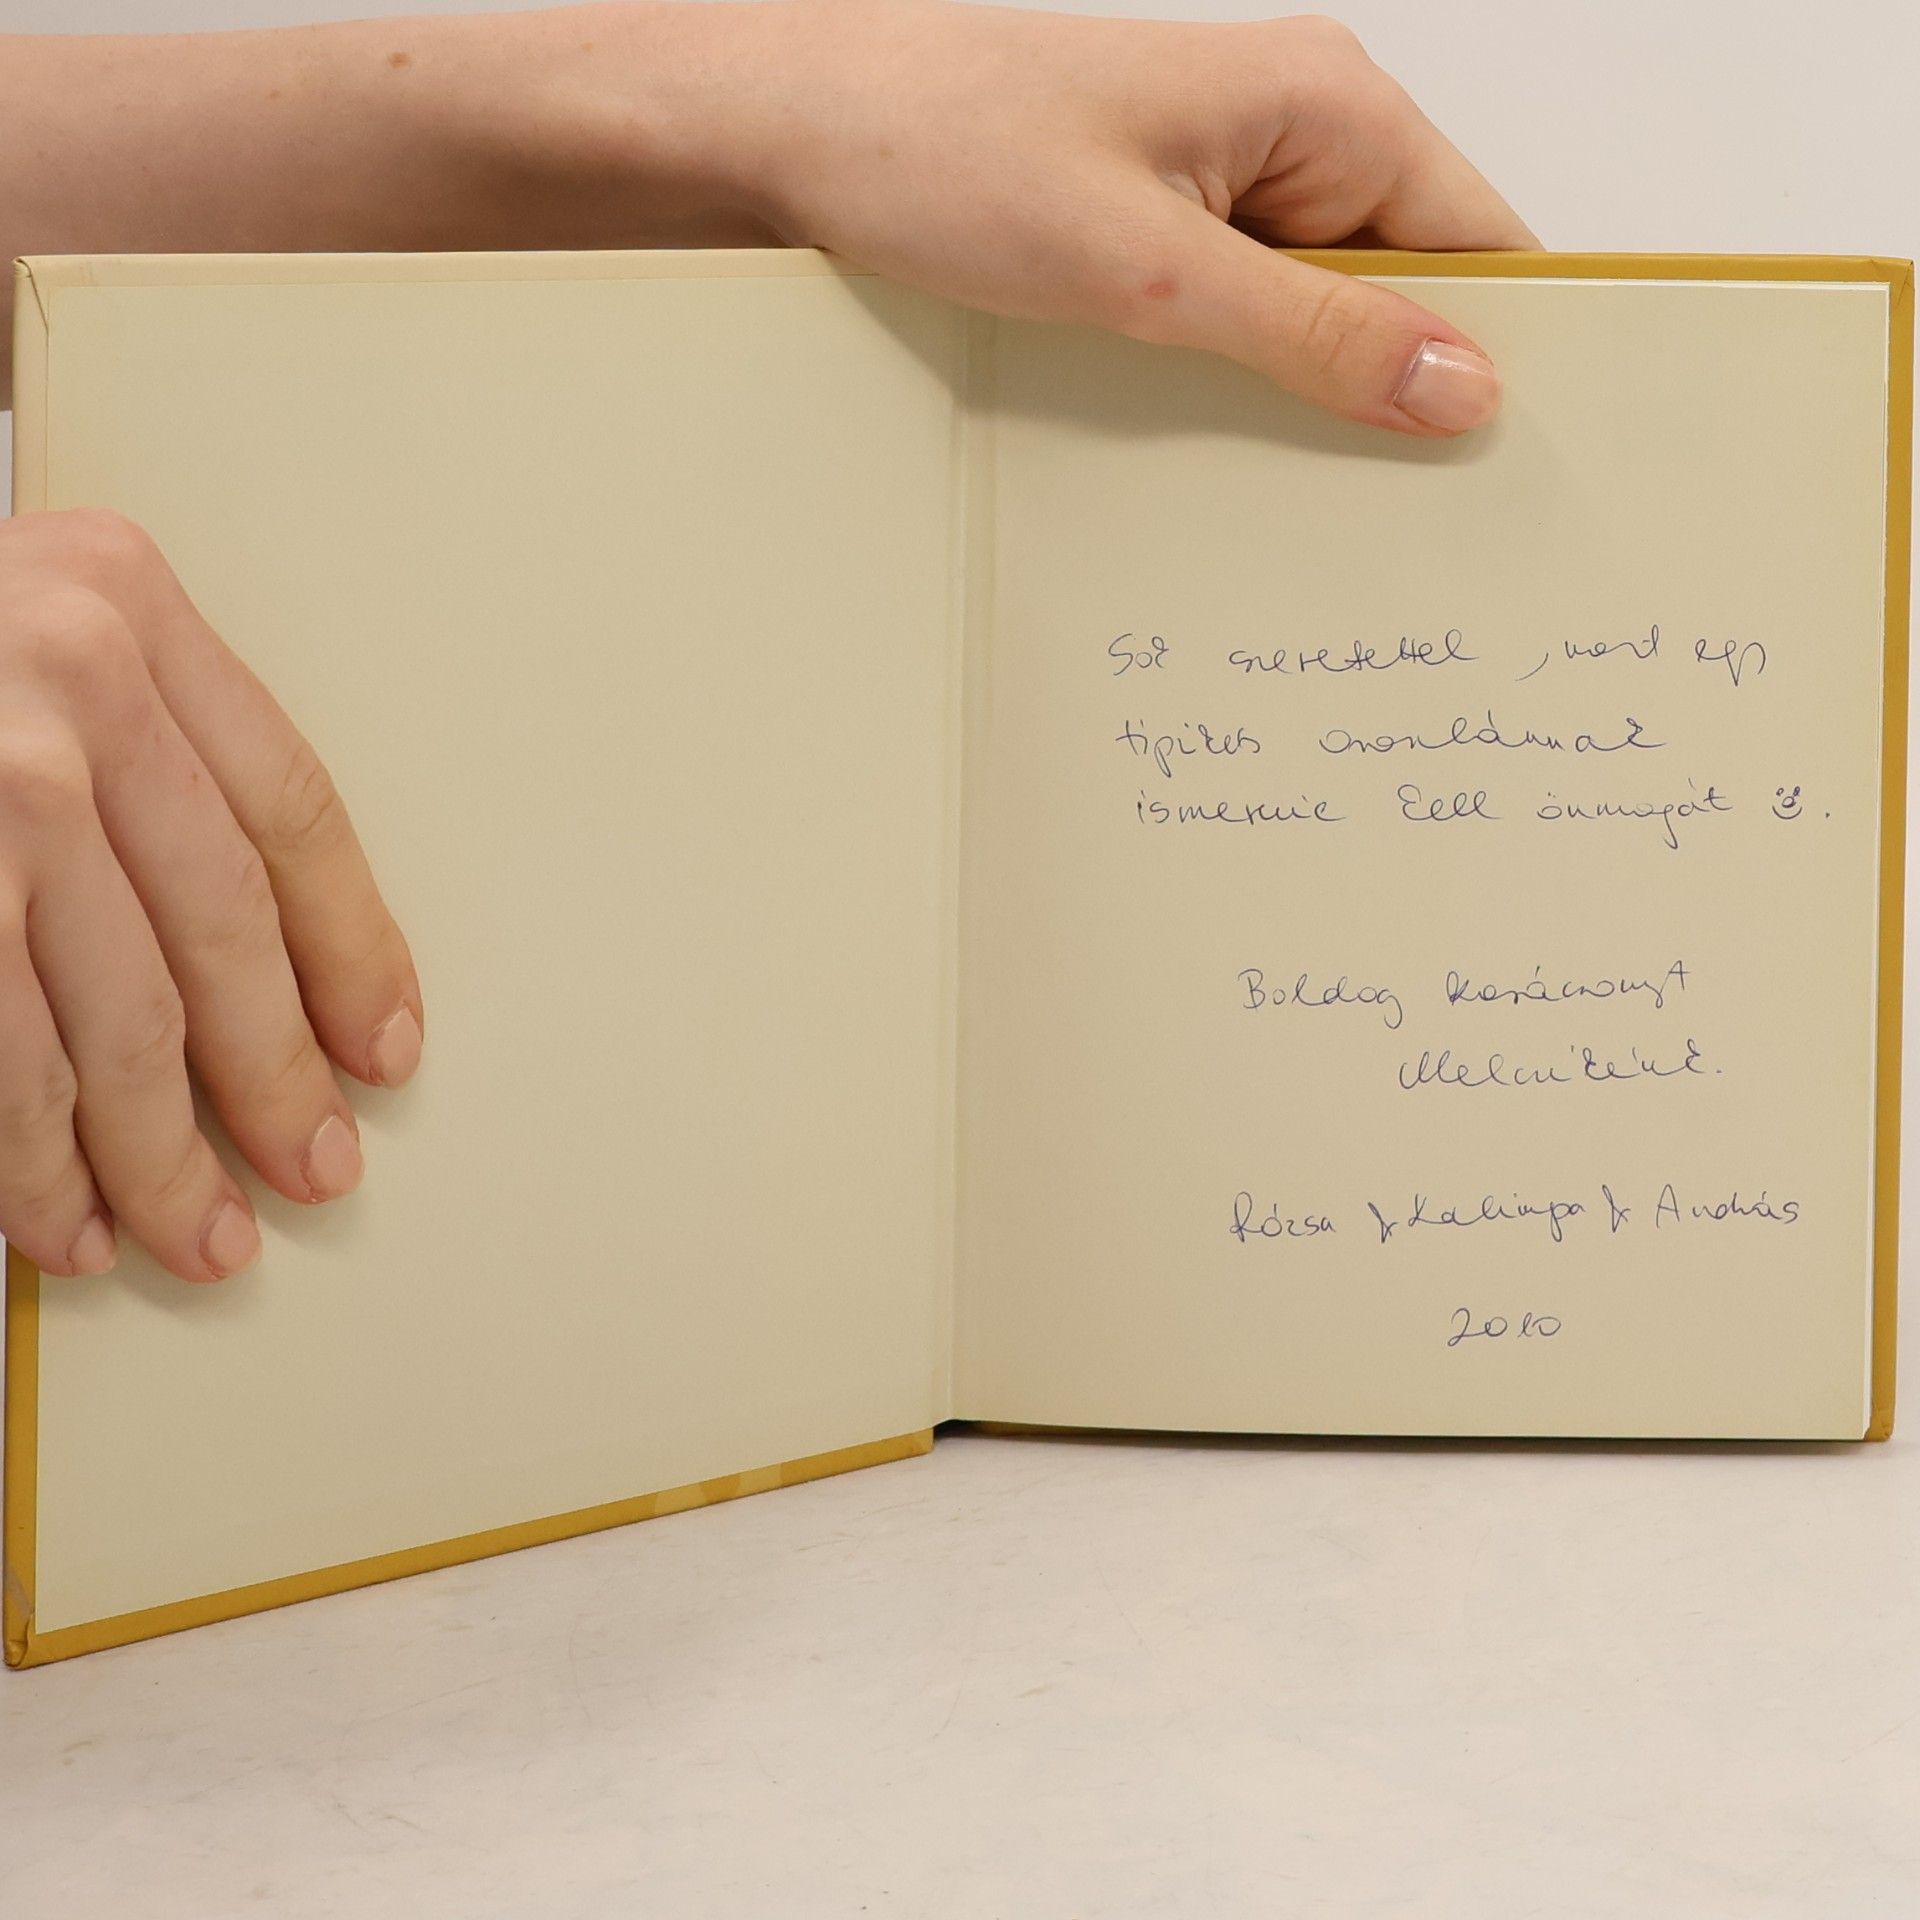 Sok szeretettel, mert egy
tipikus oroszlánnak
ismernie kell önmagát ☺.
Boldog karácsonyt
Melcsikénk.
Rózsa & Kalimpa & András
2010